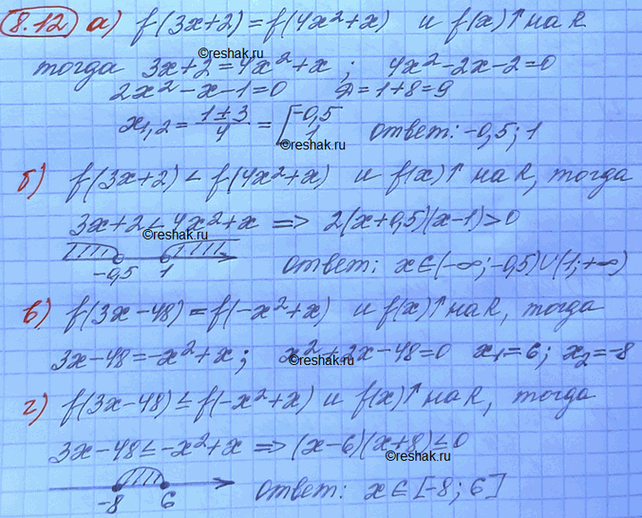 8.12 а) f(3x+2)=f(4x²+x) и f(x)↑ на R
©reshak.ru
тогда 3x+2=4x²+x; 4x²-2x-2=0
2x²-x-1=0 D=1+8=9
x₁,₂=(1±3)/4=[-0,5 1 ответ: -0,5; 1
©reshak.ru
б) f(3x+2)<f(4x²+x) и f(x)↑ на R, тогда
3x+2<4x²+x => 2(x+0,5)(x-1)>0
©reshak.ru
-0,5 1 ответ: x∈(-∞;-0,5)∪(1;+∞)
в) f(3x-48)=f(-x²+x) и f(x)↑ на R, тогда
3x-48=-x²+x; x²+2x-48=0 x₁=6; x₂=-8
©reshak.ru
г) f(3x-48)≤f(-x²+x) и f(x)↑ на R, тогда
3x-48≤-x²+x => (x-6)(x+8)≤0
©reshak.ru
-8 6 ответ: x∈[-8;6]